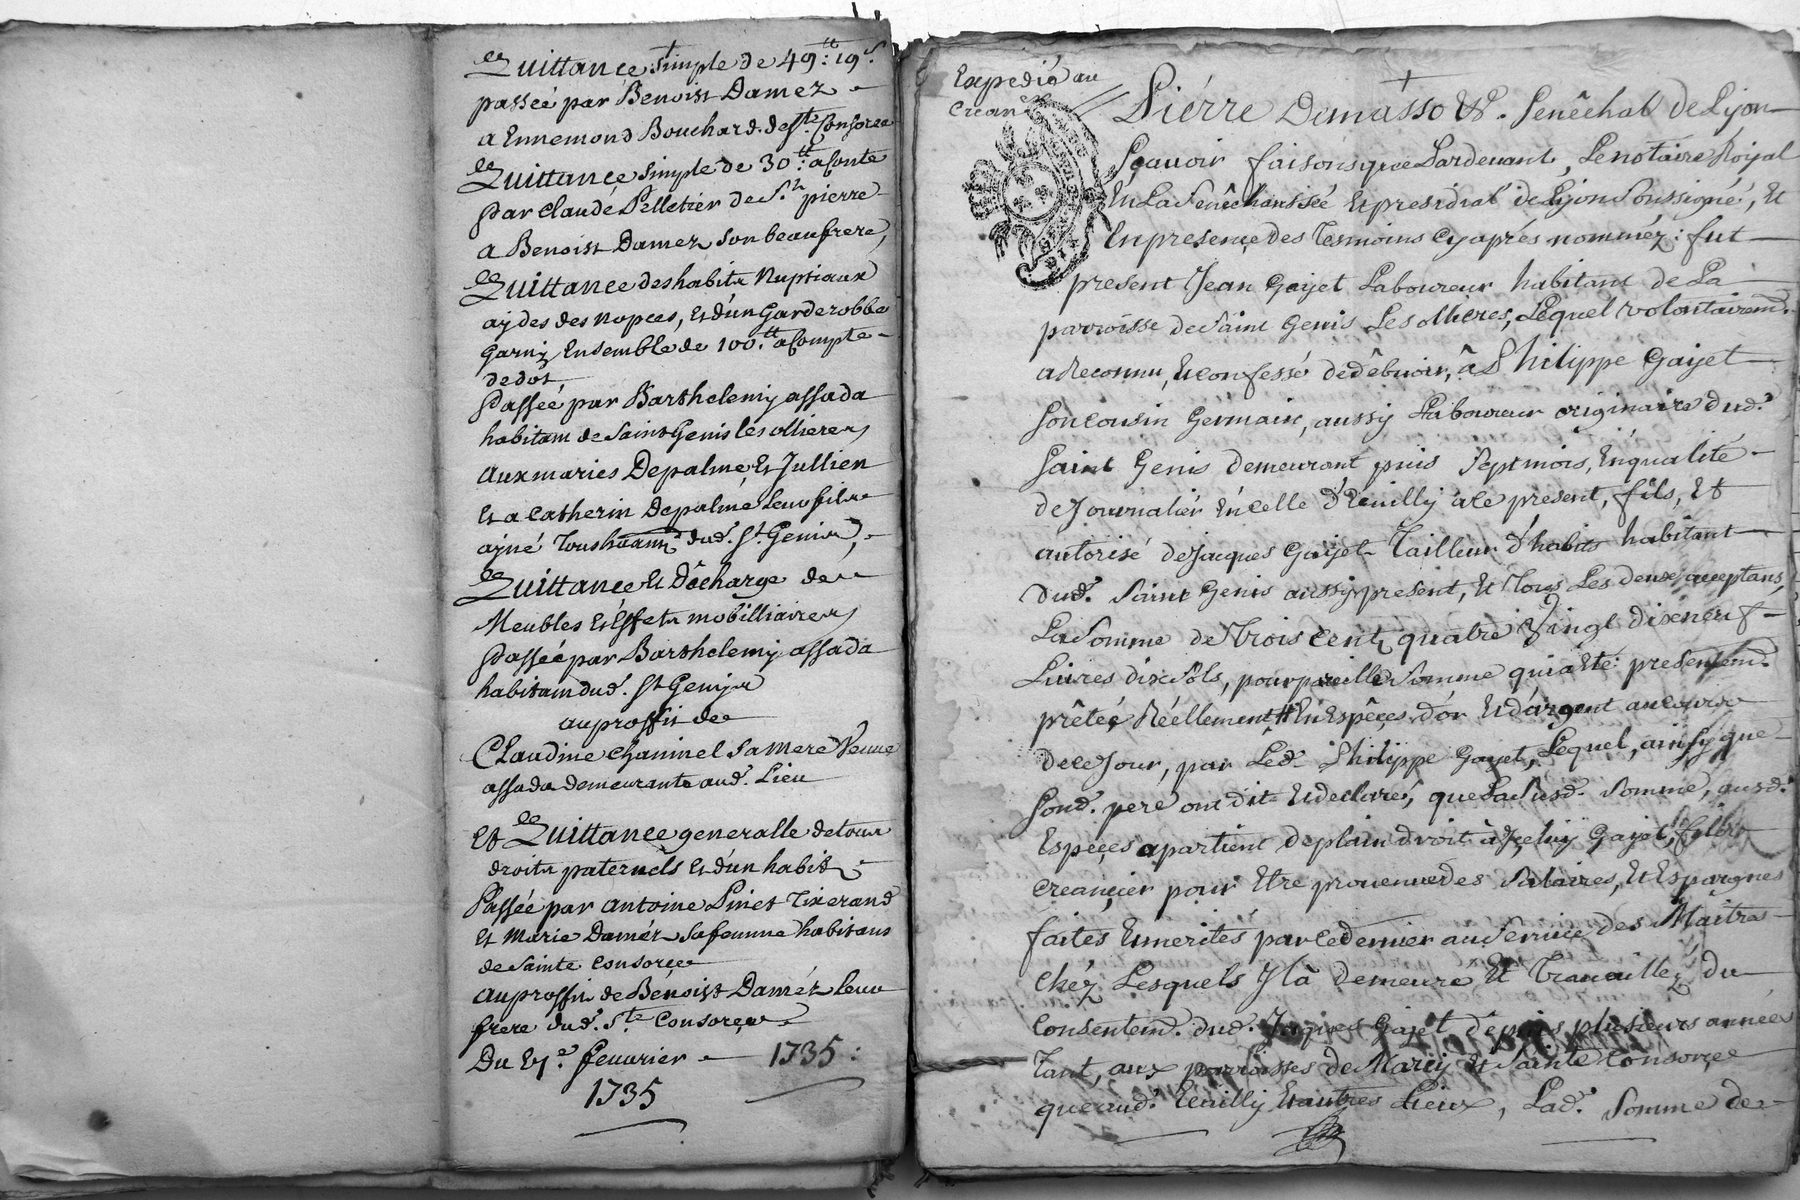 Quittance simple de 49 tt: 19 s.
passée par Benoist Damez
a Ennemond Bouchard de Ste. Consorce
Quittance simple de 30 tt. aconte
par Claude Pelletier de St. pierre
a Benoist Damez son beaufrere,
Quittance des habits Nuptiaux
aydes des nopces, et d'un Garderobbe
Garny Ensemble de 100 tt. acompte
de dot,
Passée par Barthelemy assada
habitant de Saint Genis les ollieres
aux maries Depalme, et Jullien
et a Catherin Depalme leur fils
ayné dud. St. Genis,
Quittance et Décharge de
Meubles et Effets mobilliaires
Passée par Barthelemy assada
habitant dud. St Genis
auproffit de
Claudine Chaninel sa mere Veuve
assada demeurante aud. Lieu
Et Quittance generalle de tous
droits paternels et d'un habit
Passée par antoine Pinet Tixerand
et Marie Damez sa femme habitans
de Sainte Consorce
auproffit de Benoist Damez leur
frere dud. Ste. Consorce
Du fevrier 1735:
1735
Expedié au
crean.er
Pierre Demasso &. Senêchal de Lyon
Sçavoir faisons que Pardevant, Le notaire Royal
En La Senêchaussée et presidial de Lyon Soussigné, et
En presence des Tesmoins cy aprés nommez: fut
present Jean Gayet Laboureur habitant de La
parroisse de Saint Genis Les ollieres, Lequel volontairem.
a Reconnu, et confessé de debvoir, â Philippe Gayet
son cousin Germain, aussy Laboureur originaire dud.
Saint Genis demeurant puis Sept mois, en qualité
de Journalier en celle d'Ecuilly a ce present, fils, et
autorisé de Jacques Gayet Tailleur d'habits habitant
dud. Saint Genis aussy present, et Tous Les deux acceptans,
La Somme de Trois cent quatre Vingt dix neuf
Livres dix Sols, pour pareille Somme qui a Eté presentem.
prêtée Réellement En Espêces d'or et d'argent au cours
de ce Jour, par Led. Philippe Gayet, Lequel, ainsy que
Sond. pere ont dit et declaré, que La Susd. Somme, ausd.
Especes apartient de plain droit à Jceluy Gayet, fils
creancier pour Etre provenue des Salaires, et Espargnes
faites et merités par ce dernier au Service des Maitres
chéz Lesquels Jl à demeuré et Travaillez du
Consentem. dud. Jacques Gayet depuis plusieurs années
Tant, aux parroisses de Marcy et Sainte Consorce
que aud. Ecuilly et autres Lieux, Lad. Somme de